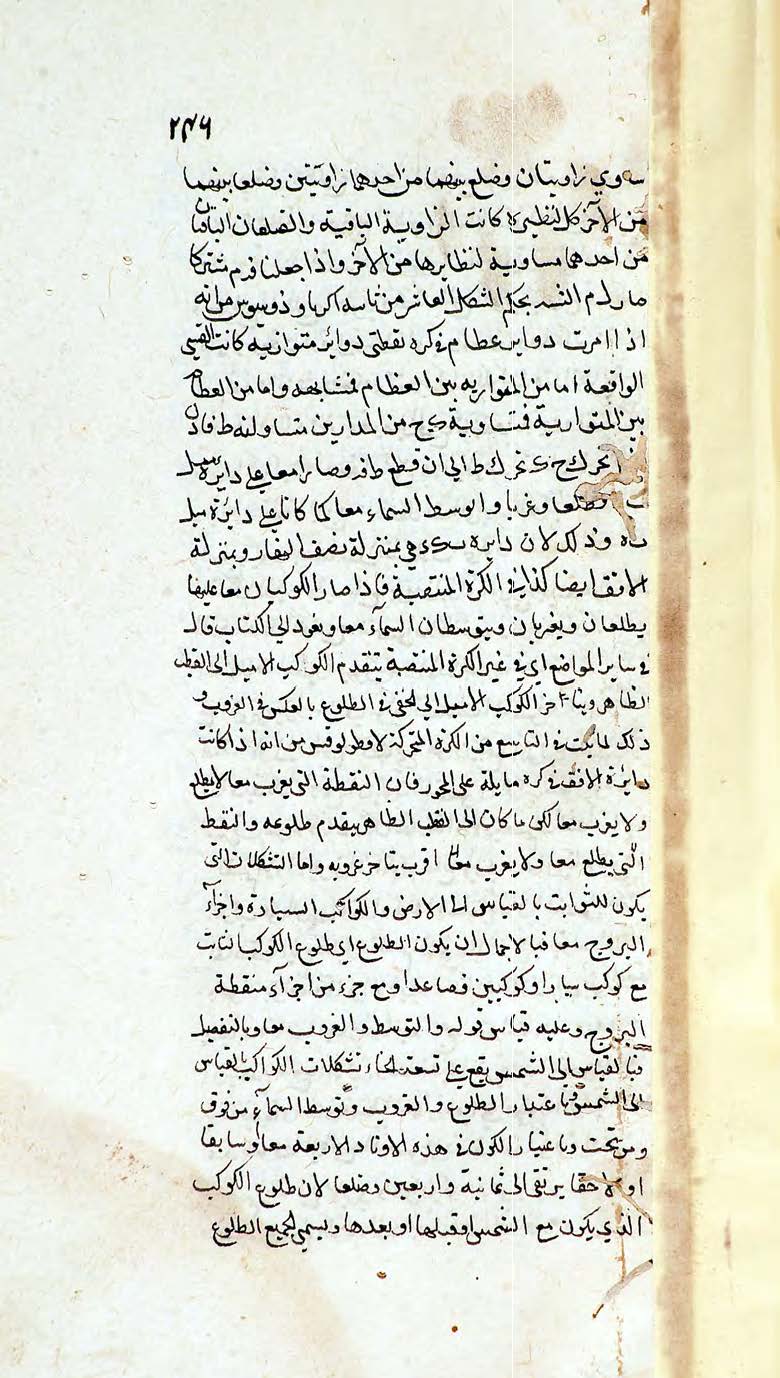 ٢٤٦
ساوي زاويتان وضلع بينهما من احدهما زاويتين وضلعا بينهما
من الآخر كل لنظيره كانت الزاوية الباقية والضلعان الباقيان
من احدهما مساوية لنظايرها من الآخر واذا جعلنا مشتركا
صار بحكم الشكل العاشر من ثانيه اكر ثاوذوسيوس من انه
اذا امرت دواير عظام في كره نقطتي دواير متوازيه كانت القسي
الواقعة اما من المتوازيه بين العظام فمتشابهه واما من العظام
بين المتوازية فمتساوية من المدارين متساو لنه ط فاذن
تحرك ط الي ان قطع وصارا معا علي دايرة ميل
وطلعا وغربا وتوسط السماء معا كما كانا علي دائرة ميل
وذلك لان دايره هي بمنزلة نصف النهار وبمنزلة
الافق ايضا كذا في الكرة المنتصبة فاذا صار الكوكبان معا عليها
يطلعان ويغربان ويتوسطان السمآء معا ونعود الي الكتاب قال
في ساير المواضع اي في غير الكرة المنتصبة يتقدم الكوكب الاميل الي القطب
الظاهر ويتاخر الكوكب الاميل الي الخفي في الطلوع بالعكس في الغروب و
ذلك لما ثبت في التاسع من الكرة المتحركة لاوطولوقس من انه اذا كانت
دايرة الافق في كره مايلة علي المحور فان النقطة التي يغرب معا لا يطلع
ولا يغرب معا لكن ما كان الي القطب الظاهر يقدم طلوعه والنقط
التي يطلع معا ولا يغرب معا اقرب يتاخر غروبه واما التشكلات التي
يكون للثوابت بالقياس الي الارض والكواكب السيارة واجزآء
البروج معا فبالاجمال ان يكون الطلوع اي طلوع الكوكب الثابت
مع كوكب سيار او كوكبين فصاعدا ومع جزء من اجزآء منقطة
البروج وعليه قياس قوله والتوسط والغروب معا وبالتفصيل
فبالقياس الي الشمس يقع علي تسعة انحاء تشكلات الكواكب بالقياس
الي الشمس فباعتبار الطلوع والغروب وتوسط السمآء من فوق
ومن تحت وباعتبار الكون في هذه الاوتاد الاربعة معا وسابقا
او لاحقا يرتقي الي ثمانية واربعين وضعا لان طلوع الكوكب
الذي يكون مع الشمس او قبلها او بعدها ويسمي لجميع الطلوع